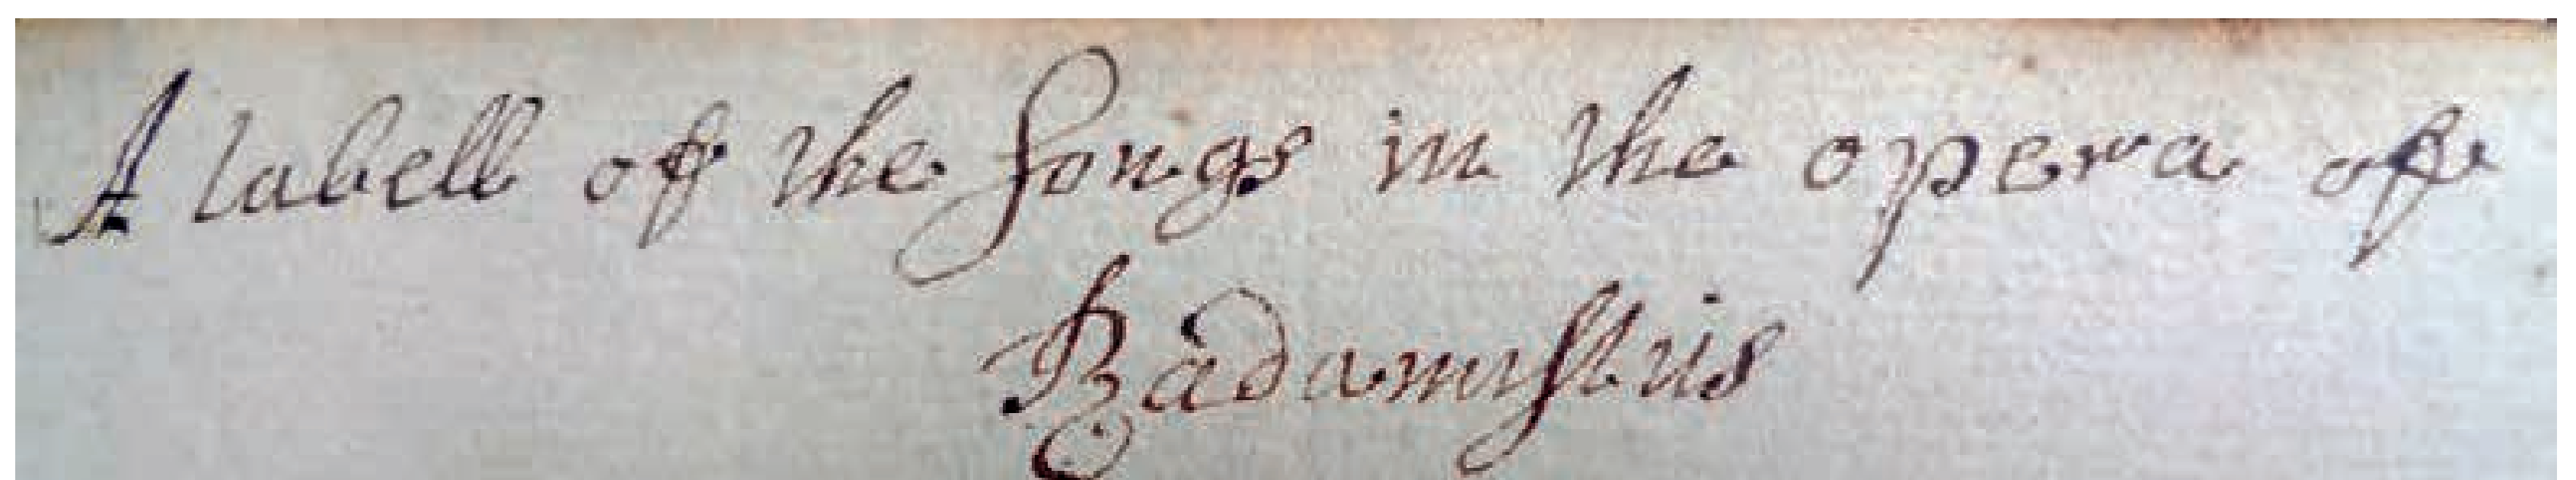 A tabell of the Songs in the opera of
Radamistus